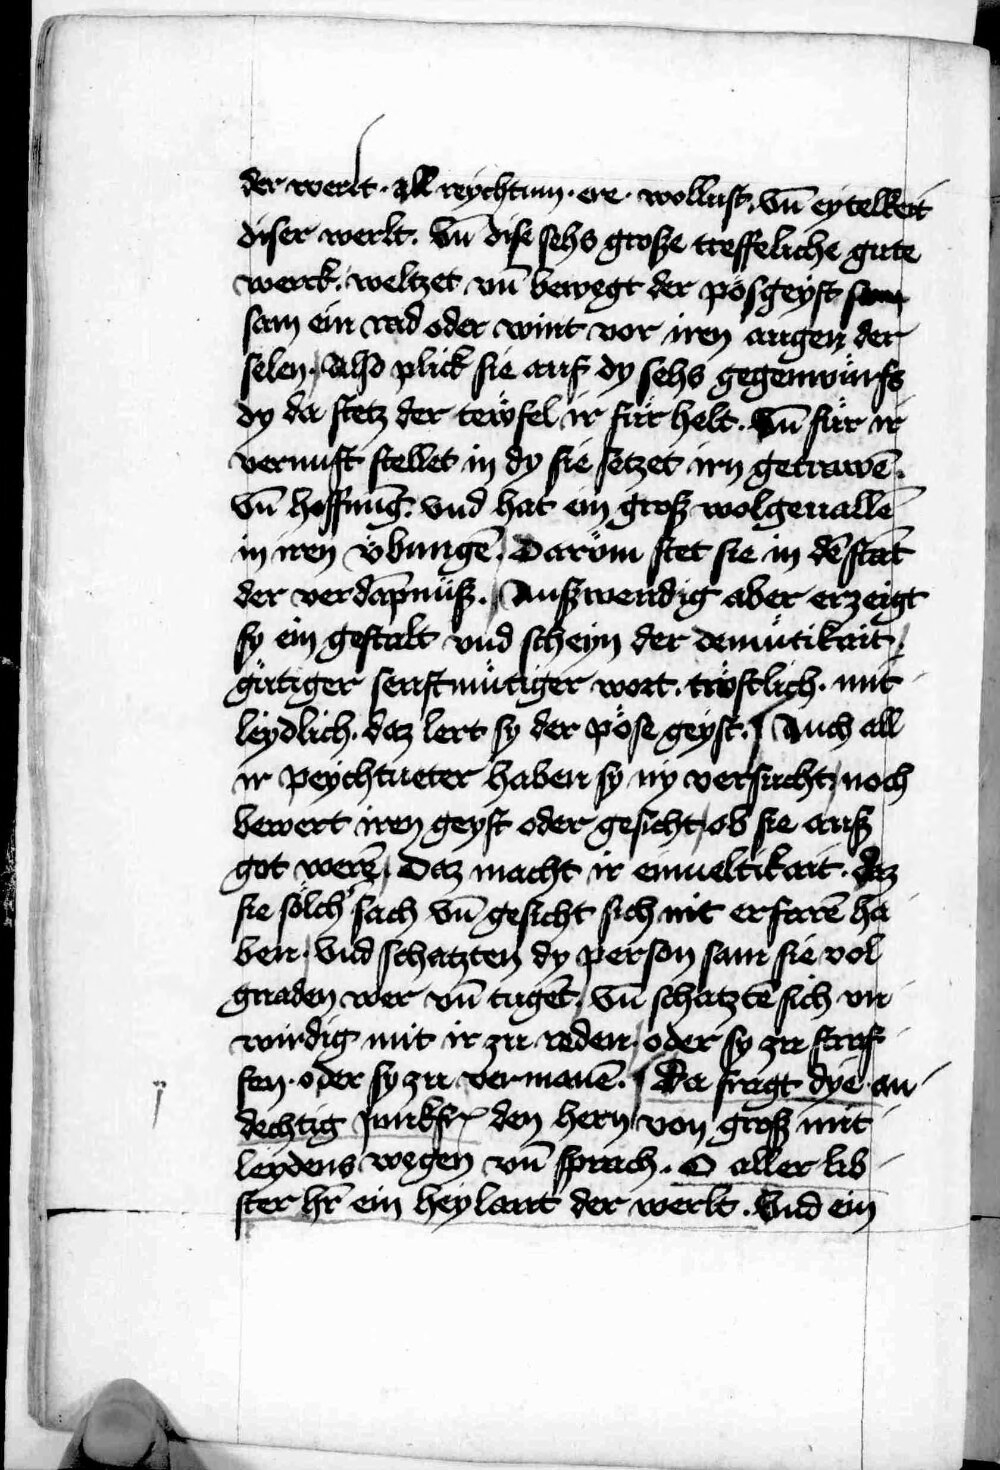 der werlt · all reychtum · ere · wollust · vn̄ eytelkeit
diser werlt. Vn̄ dise sehs große treffeliche gute
werck. weltzet vn̄ bewegt der pösgeyst
sam ein rad oder wint vor iren augen der
selen. Also plick sie auf dy sehs gegenwürfs
dy da stetz der tewfel ir für helt. Vn̄ für ir
vernuft stellet in dy sie setzet irn getrawē.
Vn̄ hoffnūg. vnd hat ein groß wolgeuallē
in iren vbungē. Darvm stet sie in dē stat
der verdāpnüß. Außwendig aber erzeigt
sy ein gestalt vnd scheyn der demütikait
gütiger senftmütiger wort. tröstlich. mit
leydlich. daz lert sy der pöse geyst. Auch all
ir peychtueter haben sy ny versucht noch
bewert iren geyst oder gesicht ob sie auß
got werē. Daz macht ir einueltikait. daz
sie sölch sach vn̄ gesicht sich nit erfarē ha
ben. Vnd schatzten dy person sam sie vol
gnaden wer vn̄ tugēt. Vn̄ schatztē sich vn
wirdig mit ir zu reden. oder sy zu straf
fen. oder sy zu vermanē. Da fragt dye an
dechtig Junkfr̄ den hern von groß mit
leydens wegen vn̄ sprach. O aller lib
ster hr̄ ein heylant der werlt. Vnd ein